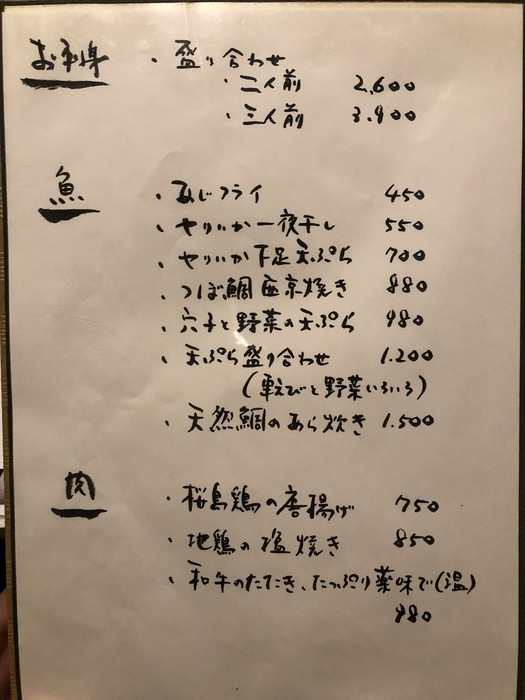 お刺身 ・盛り合わせ
・二人前 2,600
・三人前 3.900
魚
・あじフライ 450
・やりいか一夜干し 550
・やりいか下足天ぷら 700
・つぼ鯛西京焼き 880
・穴子と野菜の天ぷら 980
・天ぷら盛り合わせ 1.200
(車えびと野菜いろいろ)
・天然鯛のあら炊き 1.500
肉
・桜島鶏の唐揚げ 750
・地鶏の塩焼き 850
・和牛のたたき、たっぷり薬味で(温)
980